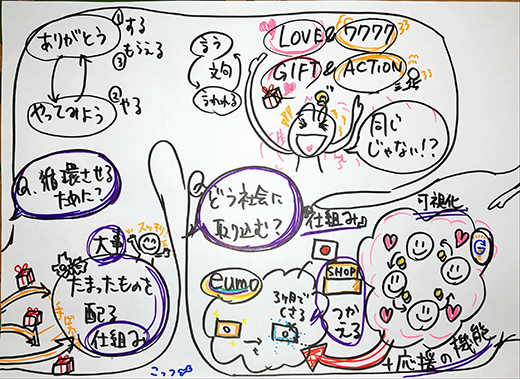 ありがとう
①する
③もらえる
やってみよう
②やる
言う
方向
うまれる
LOVE & ワクワク
GIFT & ACTION
同じ
じゃない!?
Q、循環させる
ために?
大事
スッキリ
たまったものを
配る
仕組み
Q
どう社会に
取り込む?
仕組み
可視化
eumo
3ヶ月で
できる
SHOP
つかえる
+応援の機能